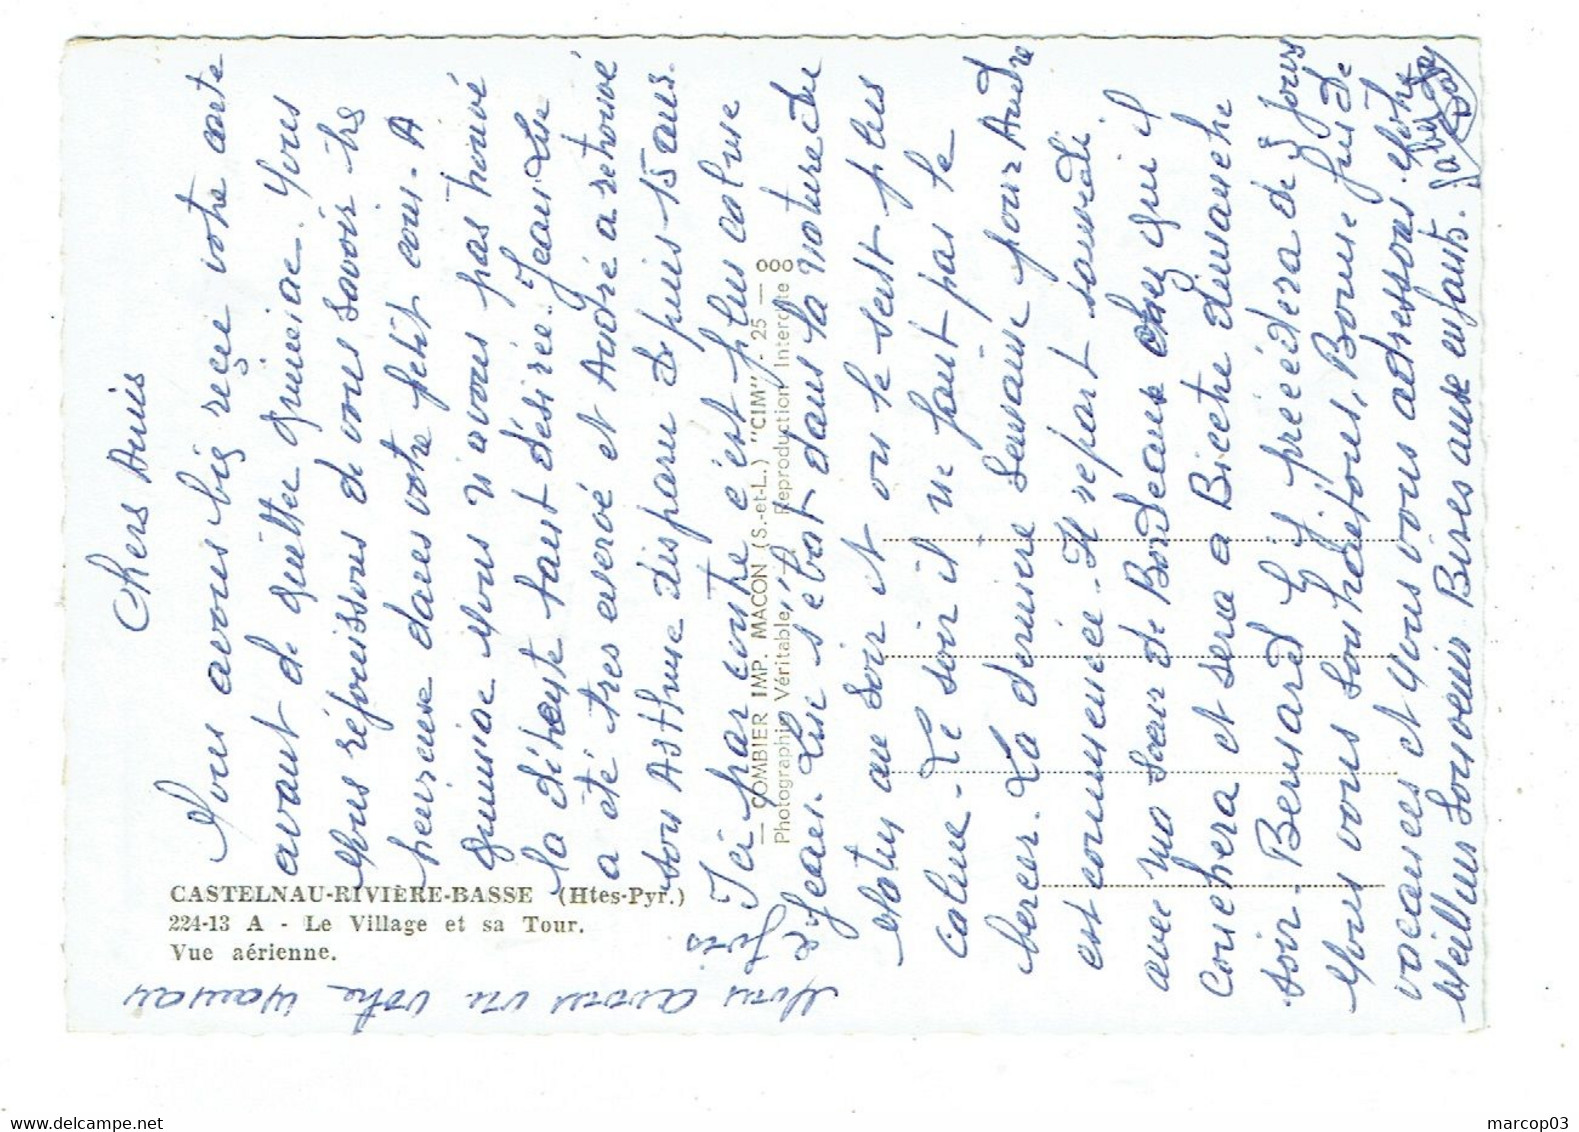 Chers Amis
Nous avons bien reçu votre carte
avant de quitter Gumiac. Nous
nous réjouissons de vous savoir très
heureuse dans votre petit coin. A
Gumiac nous n'avons pas trouvé
la détente tant désirée. Jean Luc
a été très enervé et André a retrouvé
son Asthme disparu depuis 15 ans.
Ici par contre c'est plus calme
Jean Luc s'ebat dans la nature du
matin au soir et on le sent plus
calme. Le soir il ne faut pas le
bercer. La dernière semaine pour André
est commencée. Il repart samedi
avec ma soeur de Bordeaux chez qui il
couchera et sera a Bicetre dimanche
soir. Bernard l'y précédera de 8 jours
Nous vous souhaitons, Bonne fin de
vacances et nous vous adressons nos
meilleurs souvenirs Bises aux enfants.
Nous avons vu votre maman
2 fois
CASTELNAU-RIVIÈRE-BASSE (Htes-Pyr.)
224-13 A - Le Village et sa Tour.
Vue aérienne.
— COMBIER IMP. MACON (S.-et-L.) "CIM" - 25 —
Photographie Véritable Reproduction Interdite
marcop03